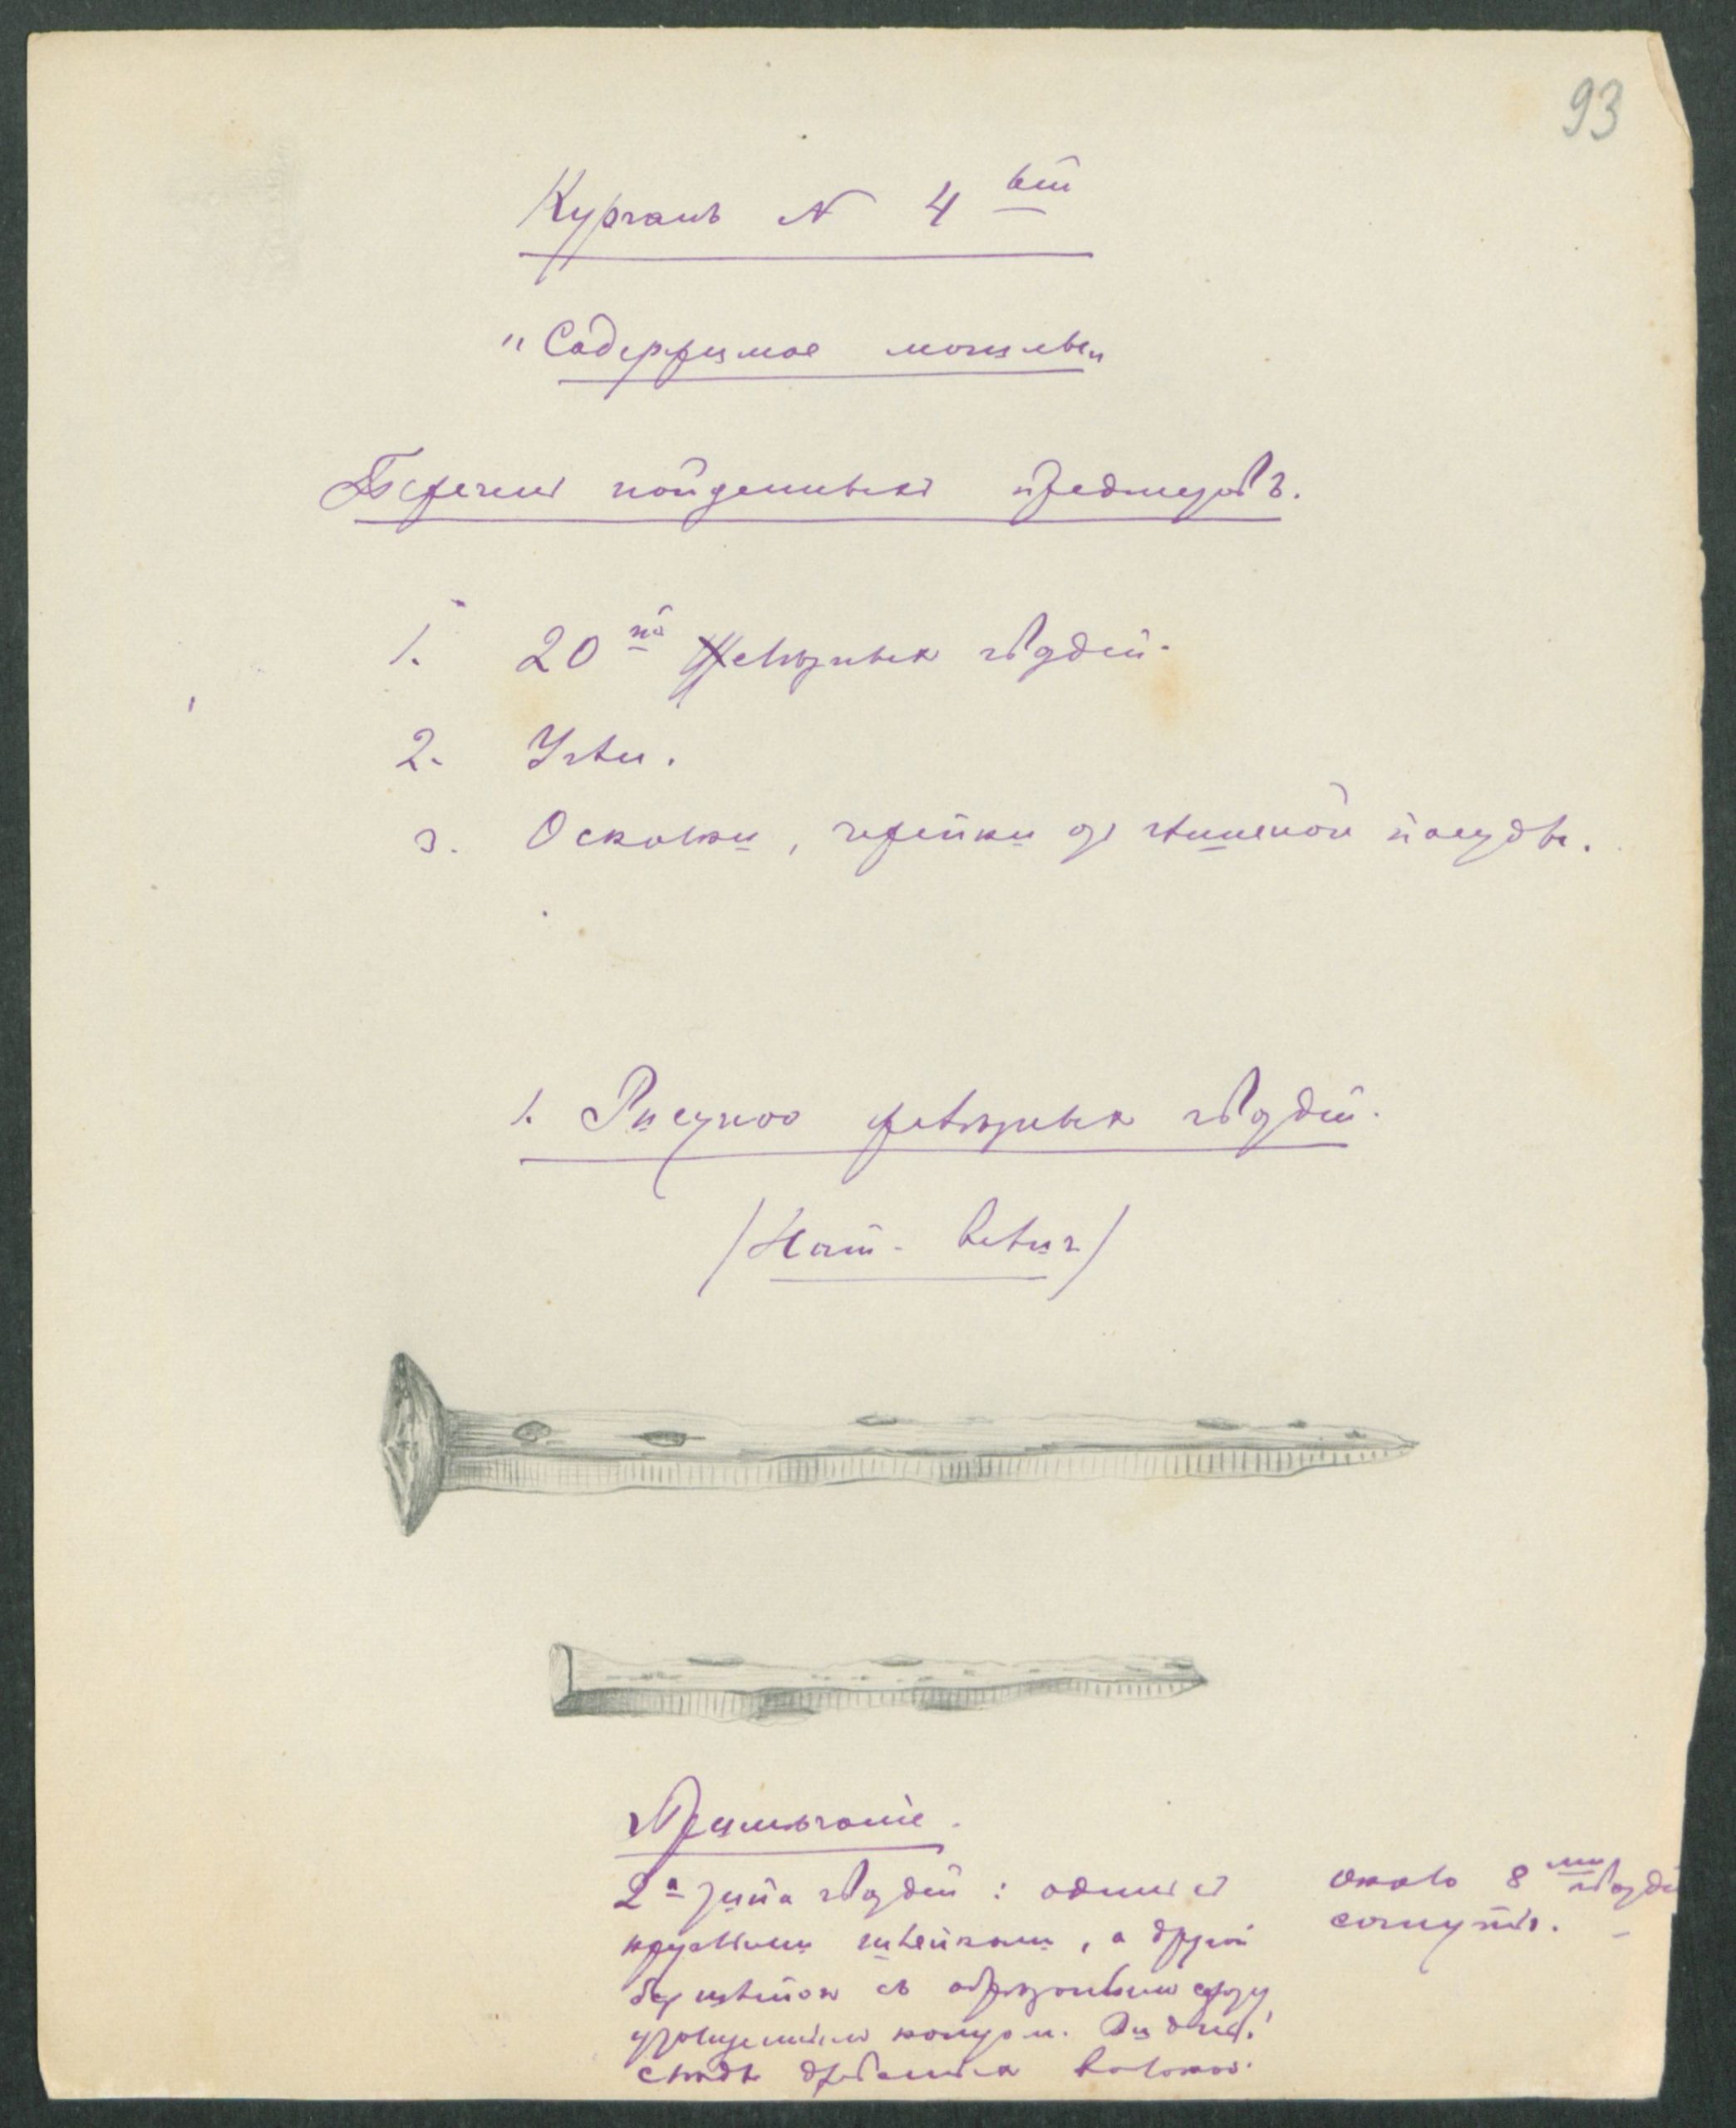 93
Курганъ № 4 ый
"Содержимое могилы"
Перечень найденныхъ предметовъ.
1. 20 ть Желѣзныхъ гвоздей.
2. Угли.
3. Осколки, черепки отъ глиняной посуды.
1. Рисунокъ желѣзныхъ гвоздей.
(Нат. велич)
Примѣчаніе.
2а типа гвоздей: одинъ съ
круглыми шляпками, а другой
безъ шляпокъ съ
утолщеннымъ концомъ. Видны
слѣды древесныхъ волоконъ.
около 8 ми гвоздей
согнуто.